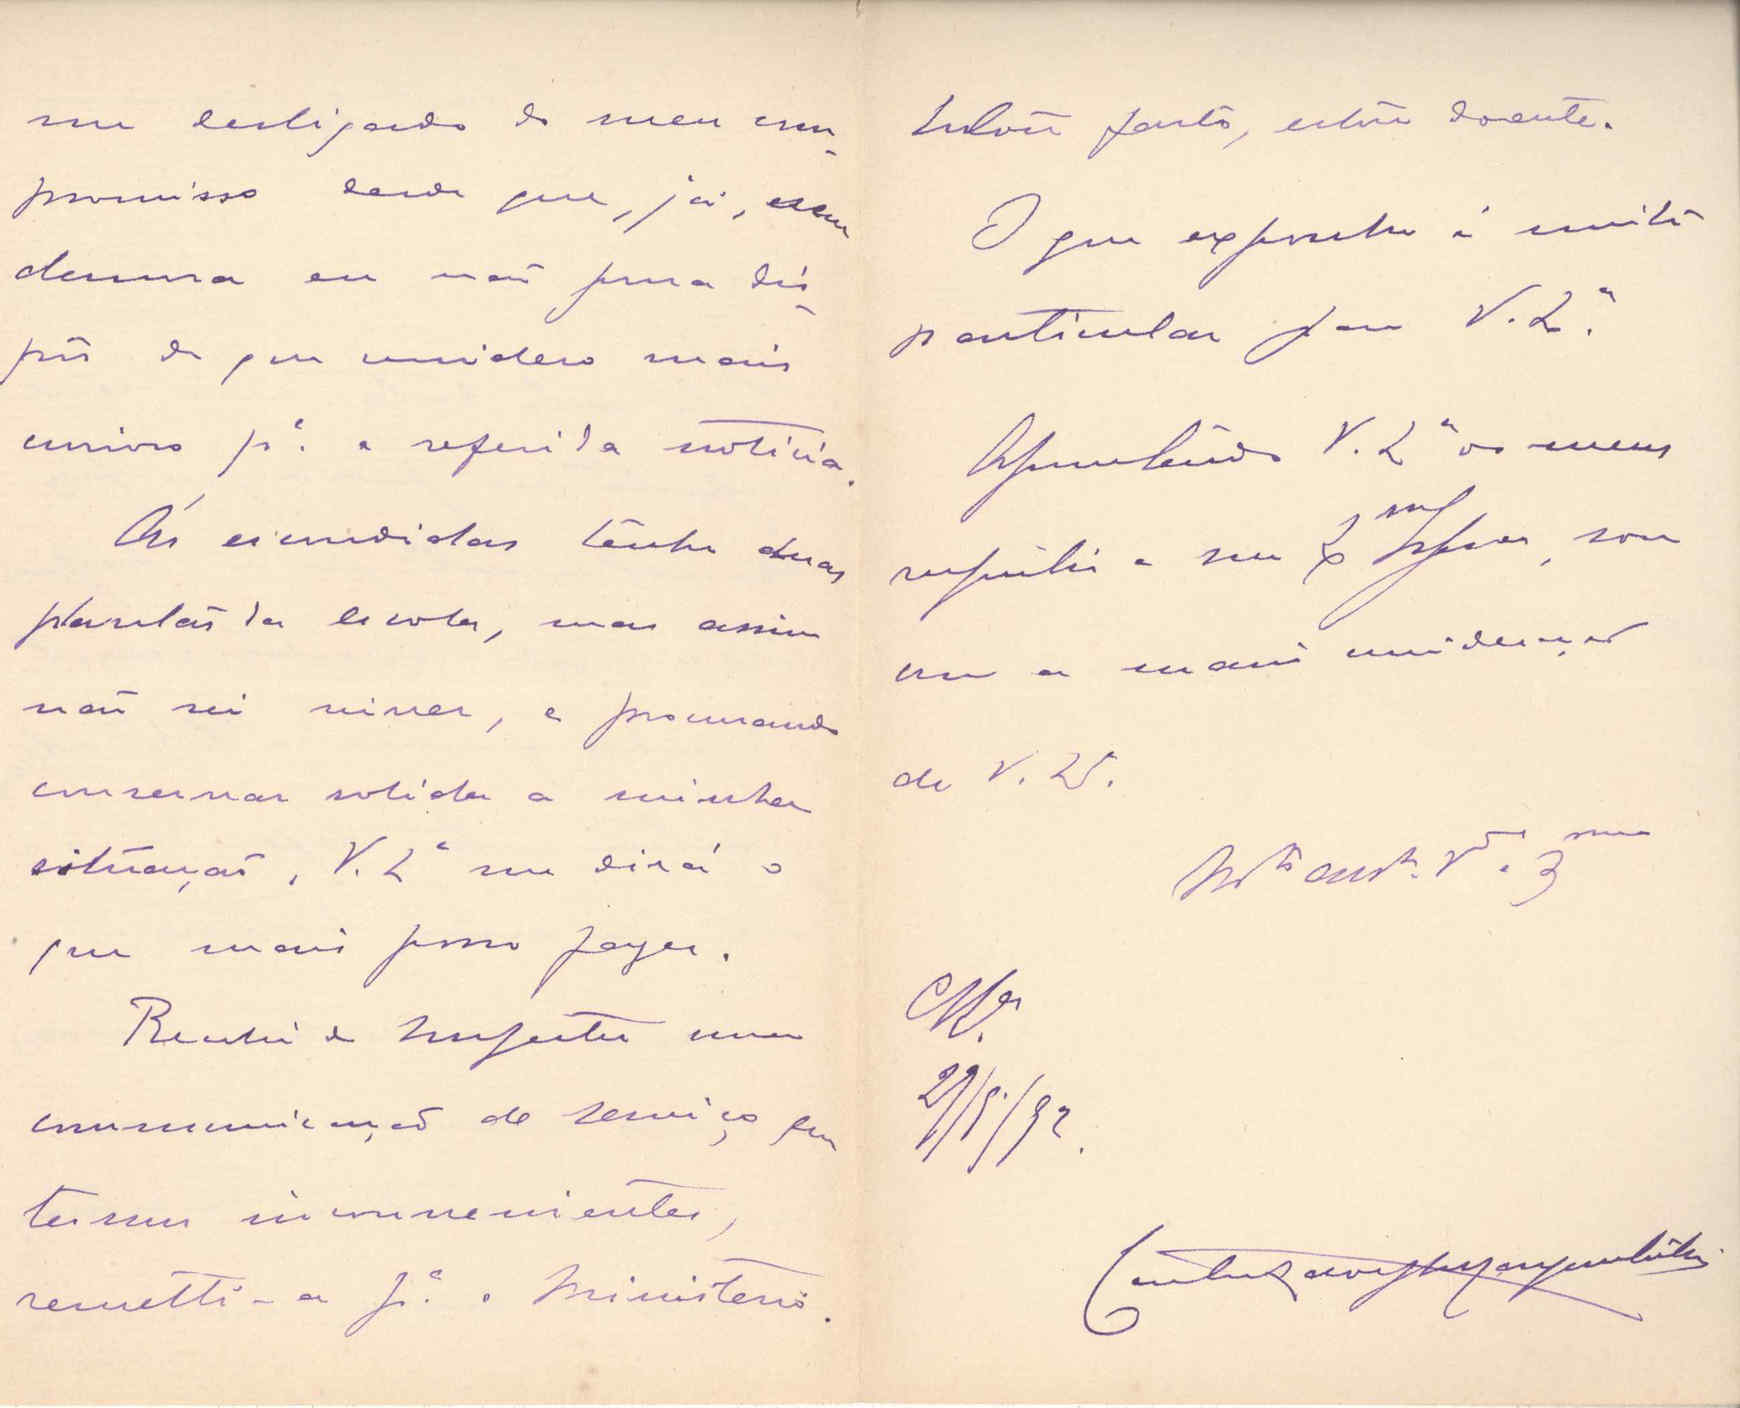 me desligando do meu com-
promisso desde que, já, sem
demora eu não possa dis-
pôr do que considero mais
curioso pª. a referida noticia.
Ás escondidas tenho duas
plantas da escola, mas assim
não sei viver, e procurando
conservar solida a minha
situação, V. Exª me dirá o
que mais posso fazer.
Recebi do Inspector uma
communicação de serviço em
termos inconvenientes,
remetti-a pª. o Ministerio.
Estou farto, estou doente.
O que exponho é muito
particular para V. Exª.
Apresentando V. Exª os meus
respeitos a sua Exma Esposa, sou
com a mais consideração
de V. Exª.